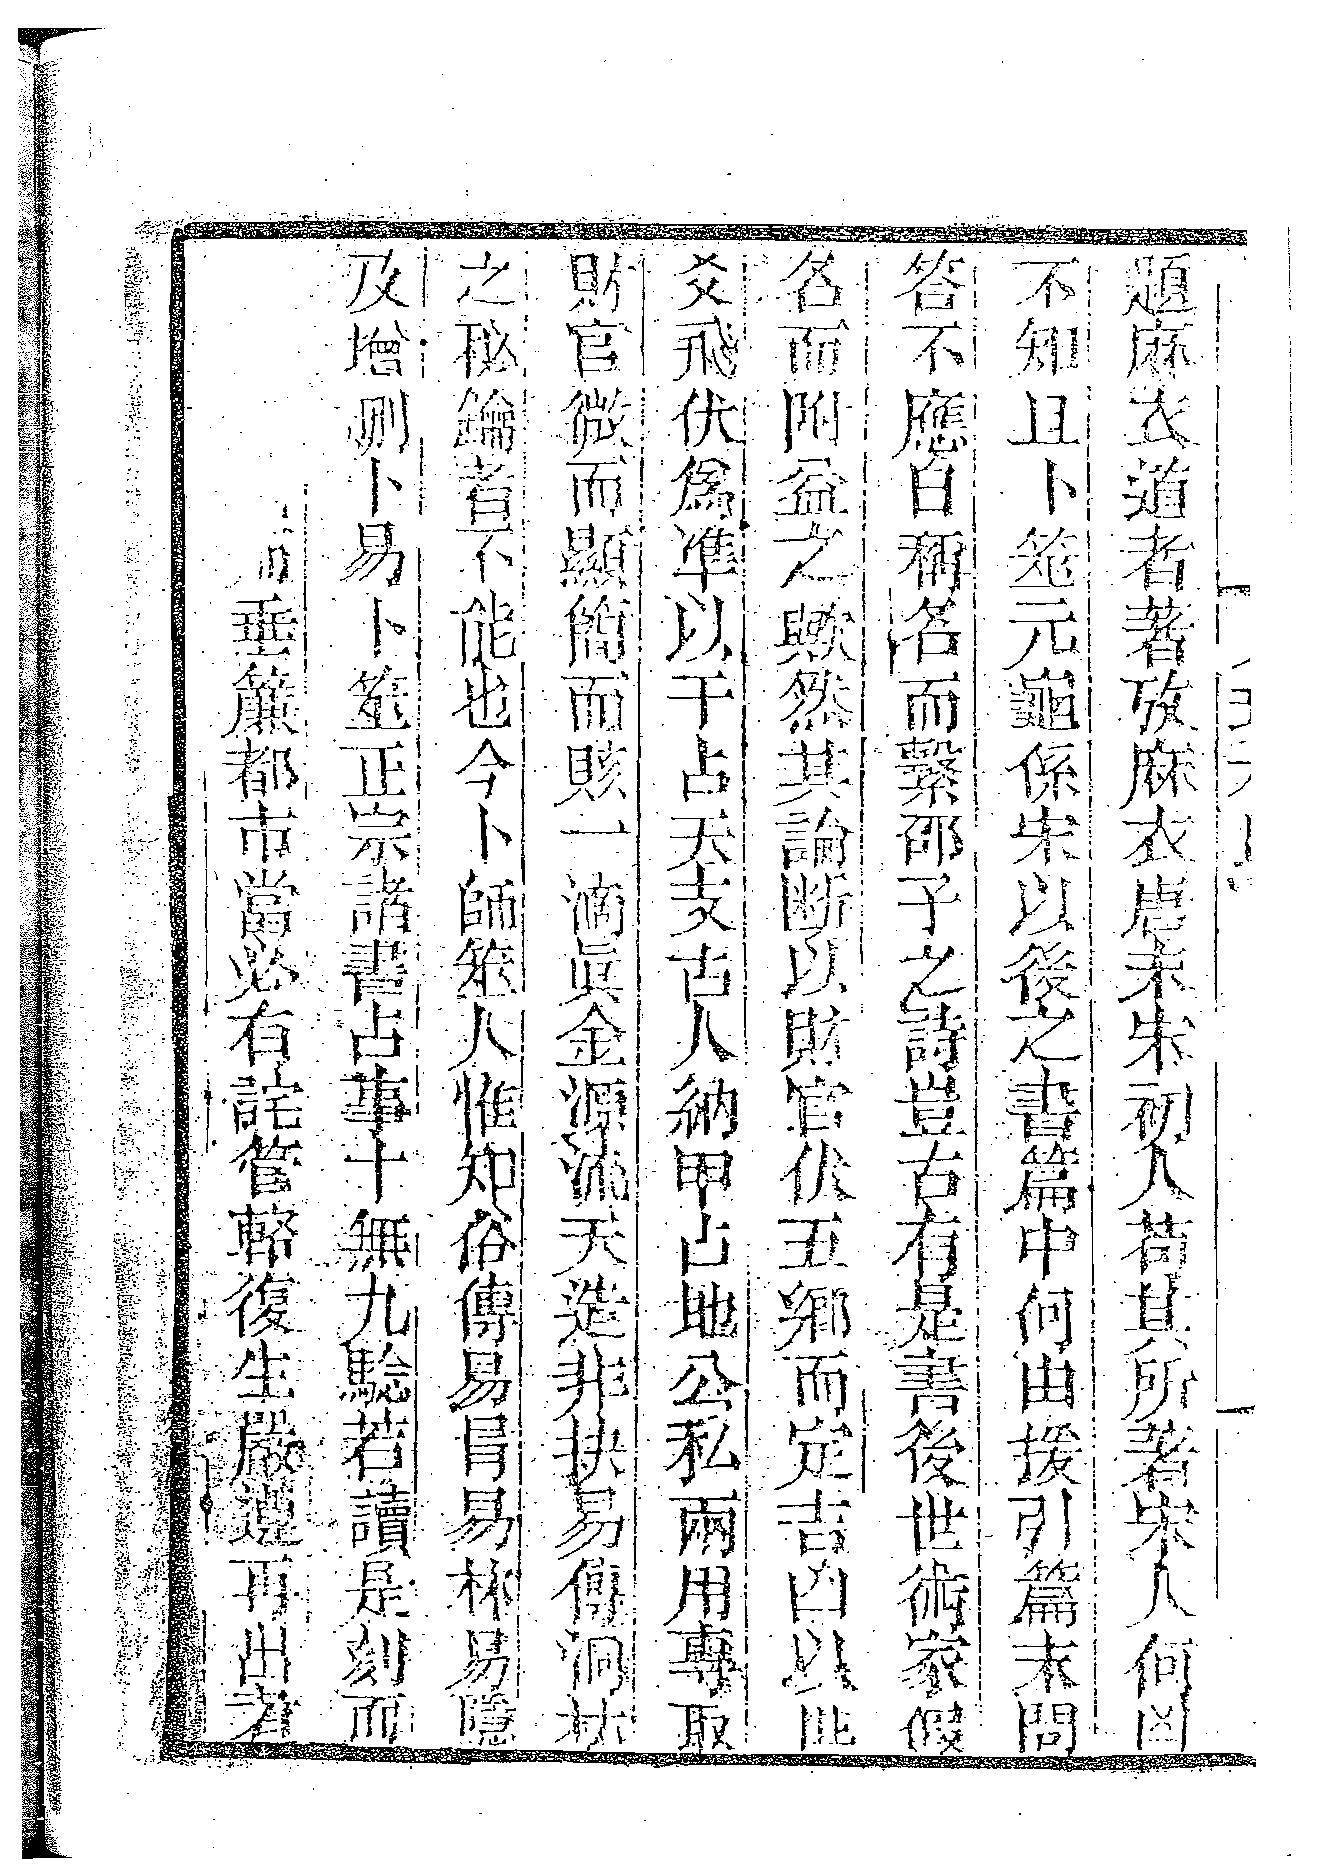 題麻衣道者著攷麻衣唐末宋初人苟其所著宋人何凶
不知且卜筮元龜係宋以後之書篇中何由援引篇末問
答不應自稱名而繫邵子之詩豈古有是書後世術家假
名而附益之歟然其論断以財官伏五鄉而定吉凶以世
爻飛伏爲準以干占天支古人納甲占地公私兩用專取
財官微而顯簡而賅一滴眞金源流天造非抉易傳洞林
之秘鑰者不能也今卜師筮人惟知俗傳易冒易林易隱
及增删卜易卜筮正宗諸書占事十無九驗若讀是刻而
垂簾都市當必有詫管輅復生嚴遵再出者